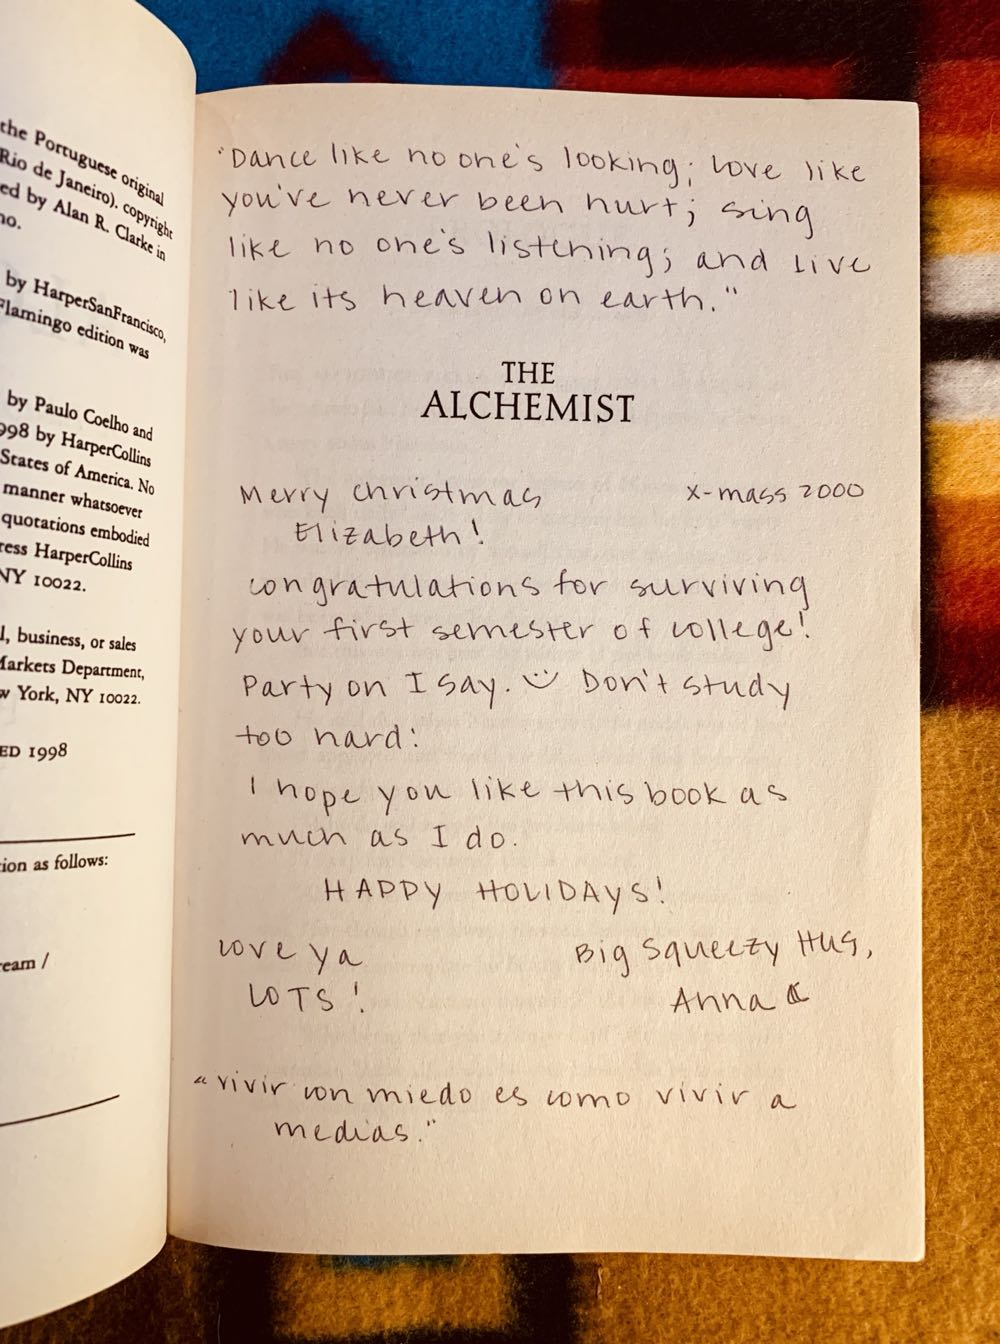 the Portuguese original
Rio de Janeiro), copyright
ed by Alan R. Clarke in
no.
by HarperSanFrancisco,
Flamingo edition was
by Paulo Coelho and
998 by HarperCollins
States of America. No
manner whatsoever
quotations embodied
ress HarperCollins
NY 10022.
l, business, or sales
Markets Department,
w York, NY 10022.
ED 1998
ion as follows:
ream /
"Dance like no one's looking; love like
you've never been hurt; sing
like no one's listening; and live
like its heaven on earth."
THE
ALCHEMIST
Merry Christmas X-mass 2000
Elizabeth!
Congratulations for surviving
your first semester of college!
Party on I say. Don't study
too hard!
I hope you like this book as
much as I do.
HAPPY HOLIDAYS!
Love ya Big Squeezy Hug,
LOTS! Anna
"vivir con miedo es como vivir a
medias."